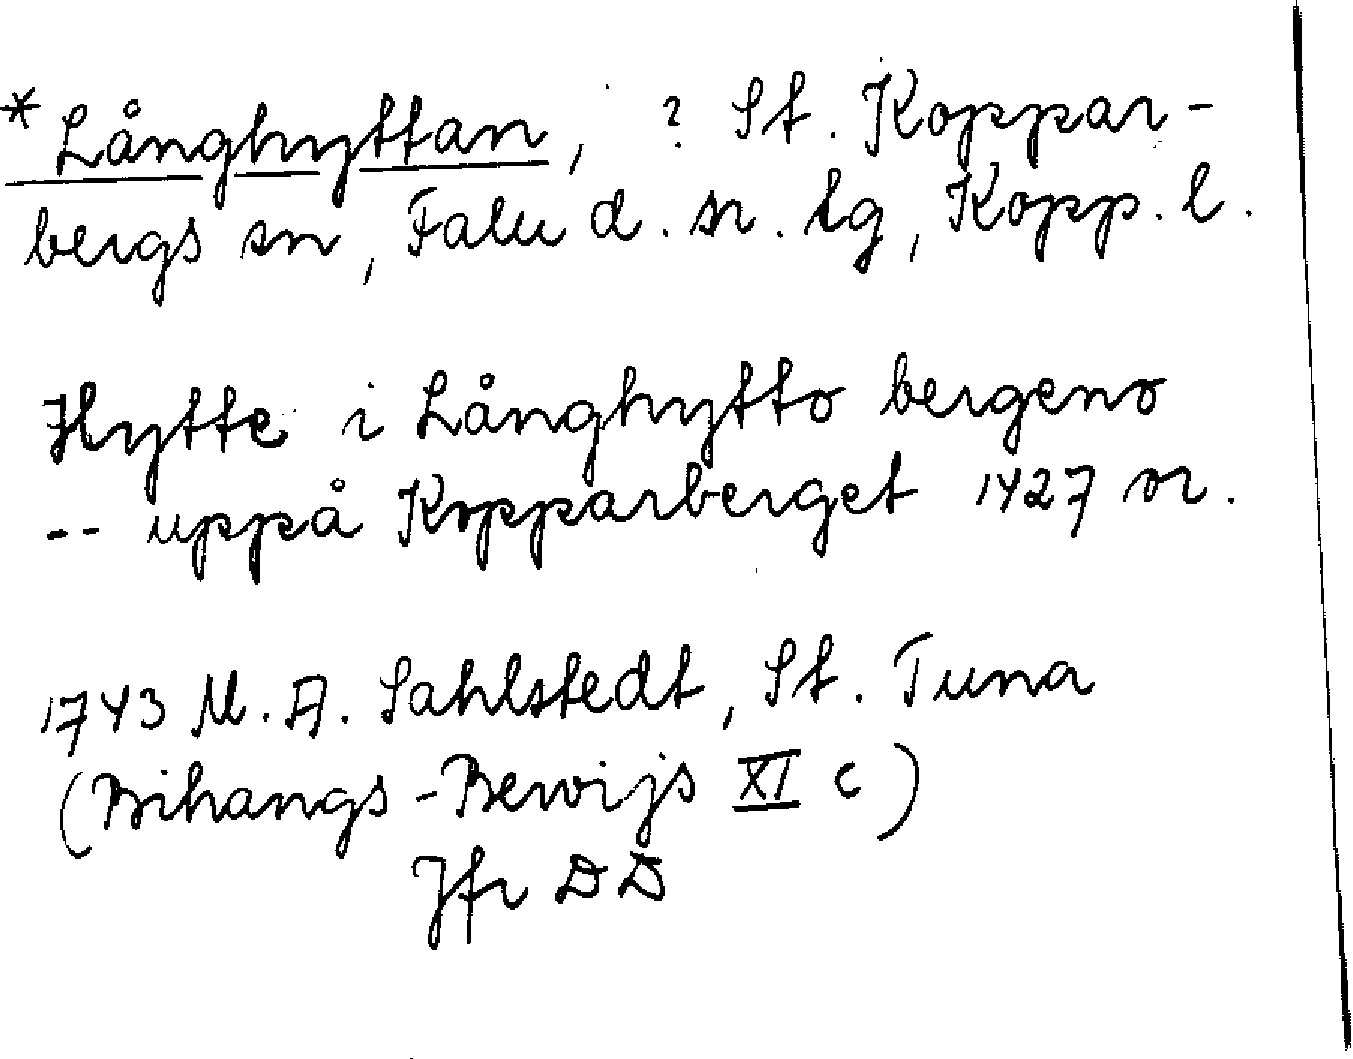 *Långhyttan, ? St. Koppar-
bergs sn, Falu d. sr. lg, Kopp. l.
Hytte i Långhytto bergeno
-- uppå Kopparberget 1427 or.
1743 M. A. Sahlstedt, St. Tuna
(Bihangs-Bewijs XI c)
Jfr DD